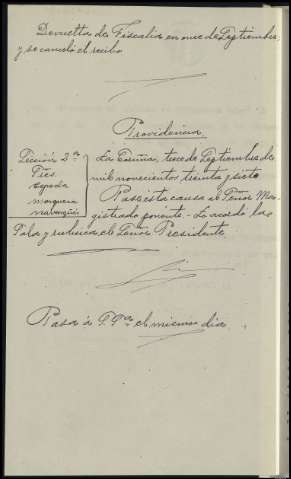 Devuelta de Fiscalía en nueve de Septiembre
y se canceló el recibo
Providencia
Sección 2ª
Sres
Cepeda
La Coruña, trece de Septiembre de
mil novecientos treinta y siete
Pase esta causa al Señor Ma-
gistrado ponente - Lo acordó la
Sala y rubrica el Señor Presidente
Pasa a S. Sª el mismo día